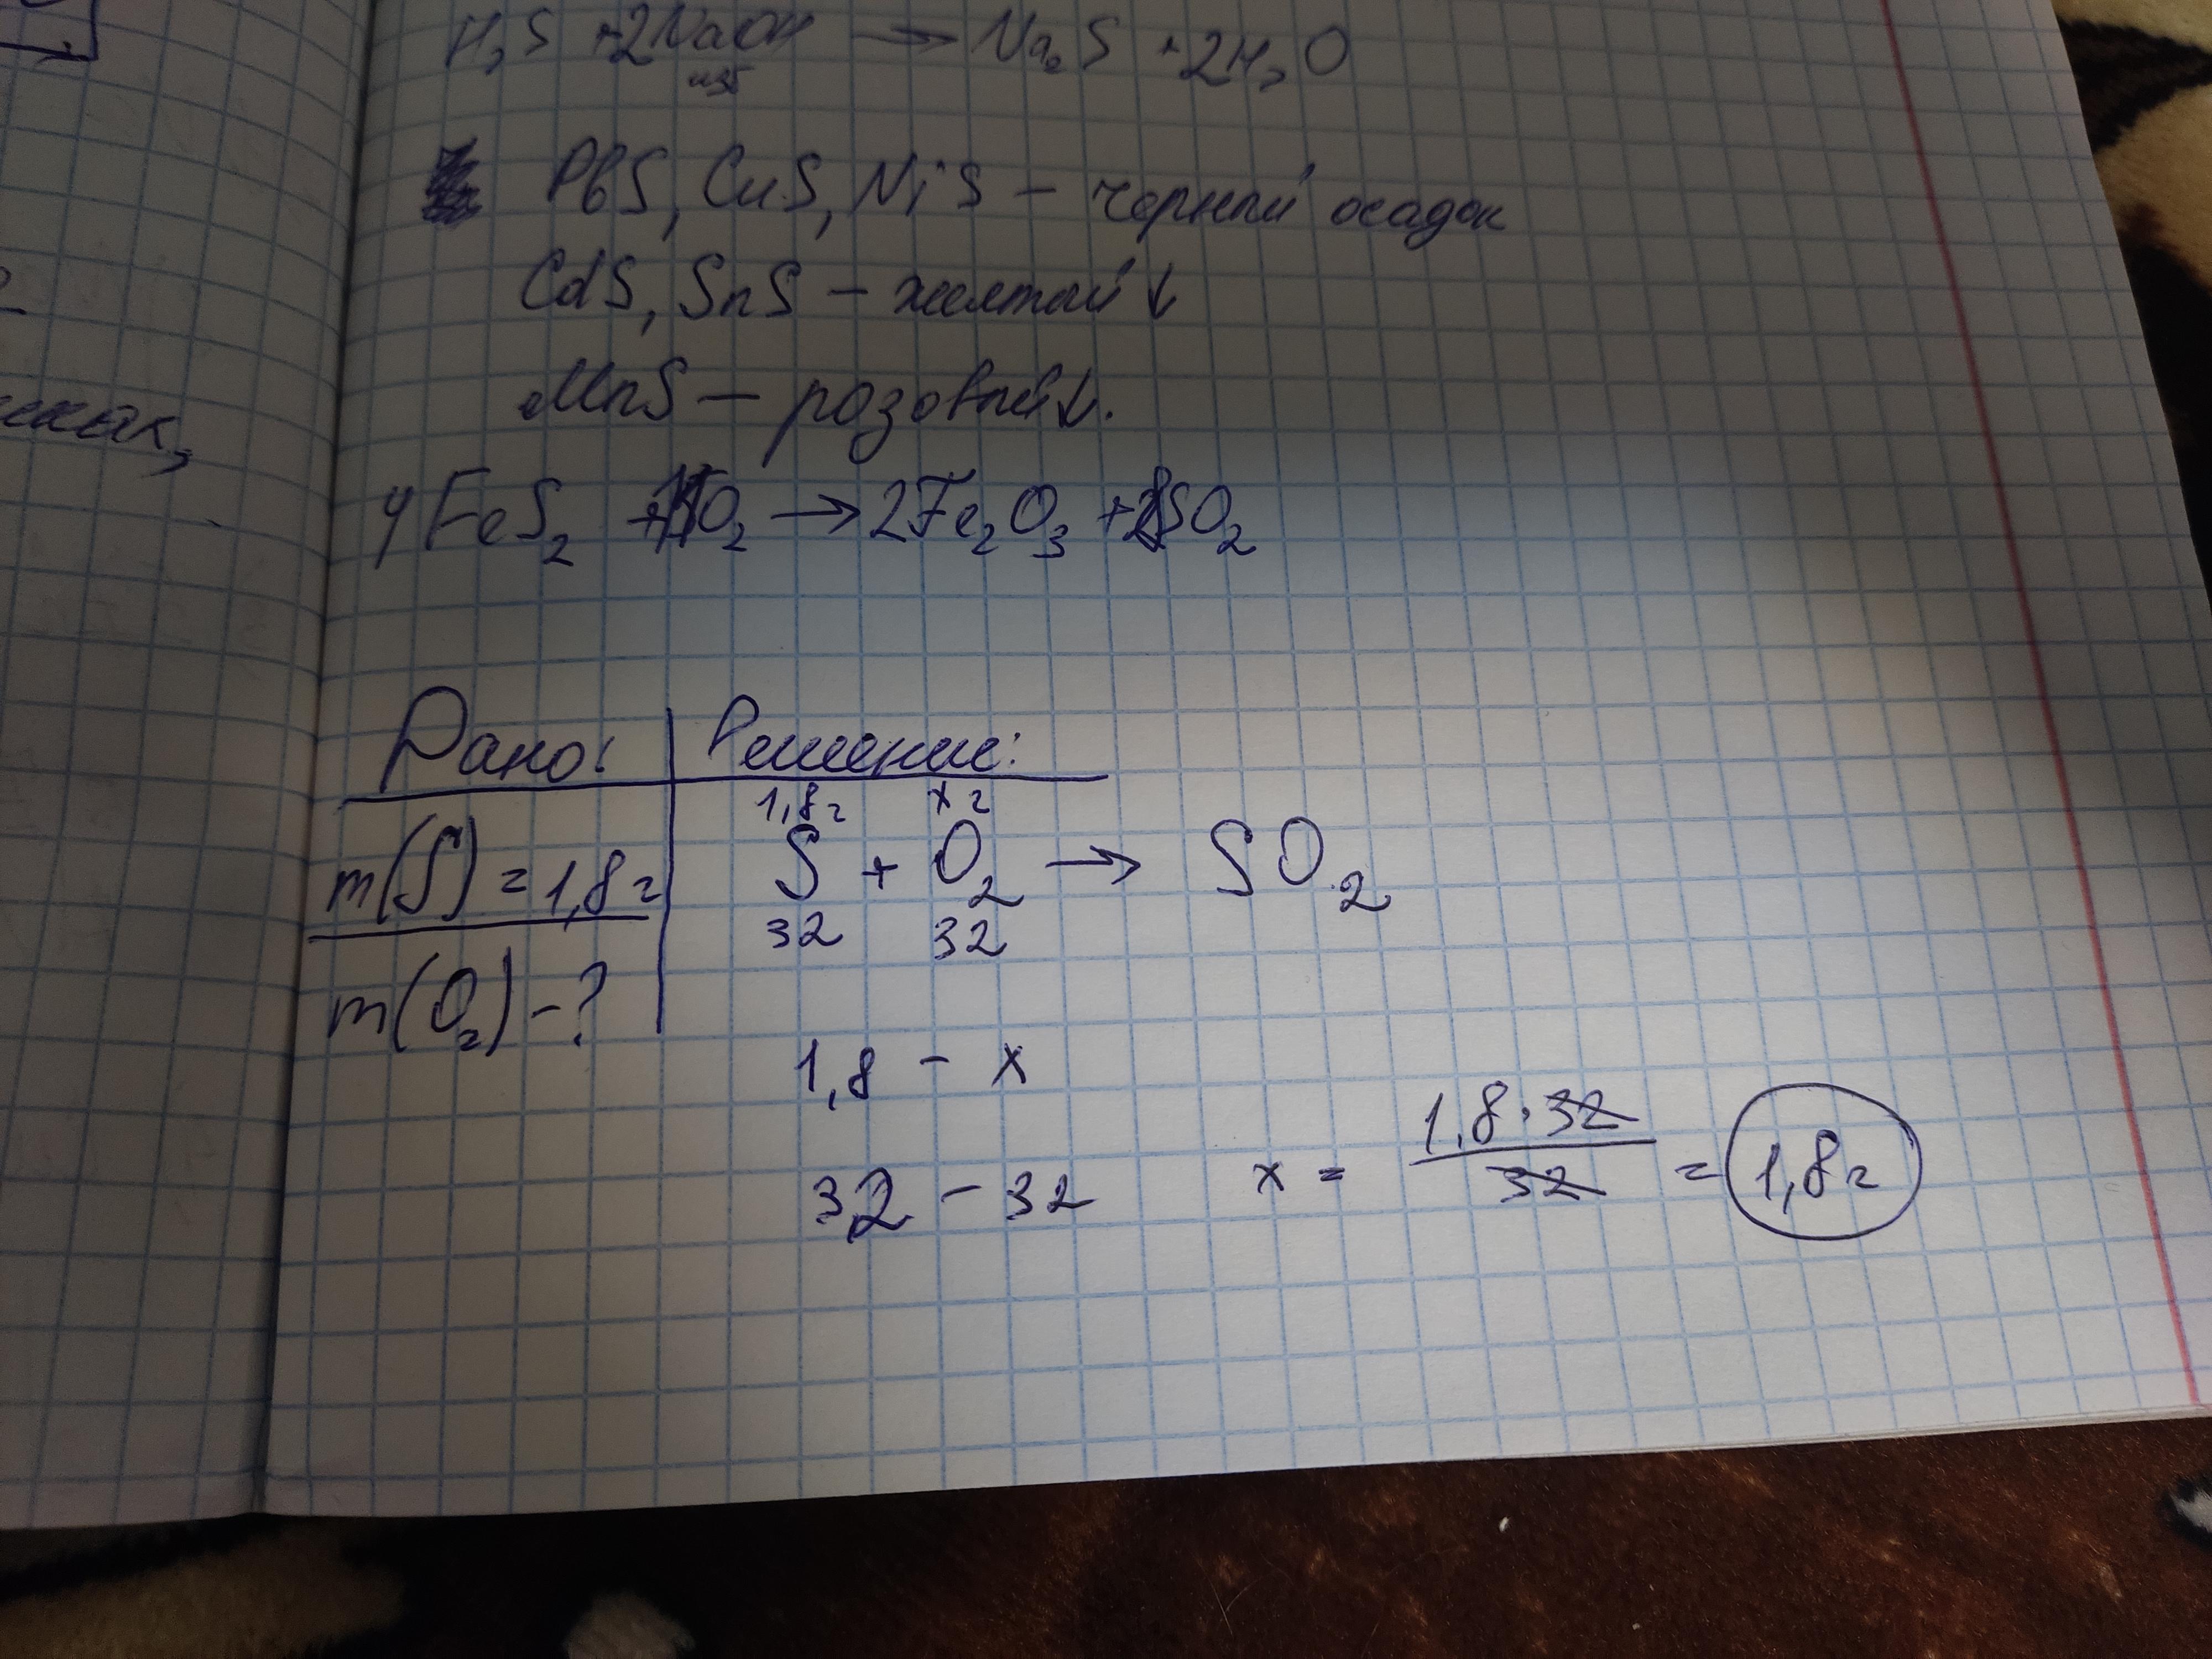 H₂S + 2NaOH → Na₂S + 2H₂O
изб
PbS, CuS, NiS – черный осадок
CdS, SnS – желтый ↓
MnS – розовый ↓.
4FeS₂ + O₂ → 2Fe₂O₃ + SO₂
Дано: Решение:
1,8г xг
m(S) = 1,8г S + O₂ → SO₂
32 32
m(O₂) – ?
1,8 – x
32 – 32 x = 1,8·32 / 32 = 1,8г